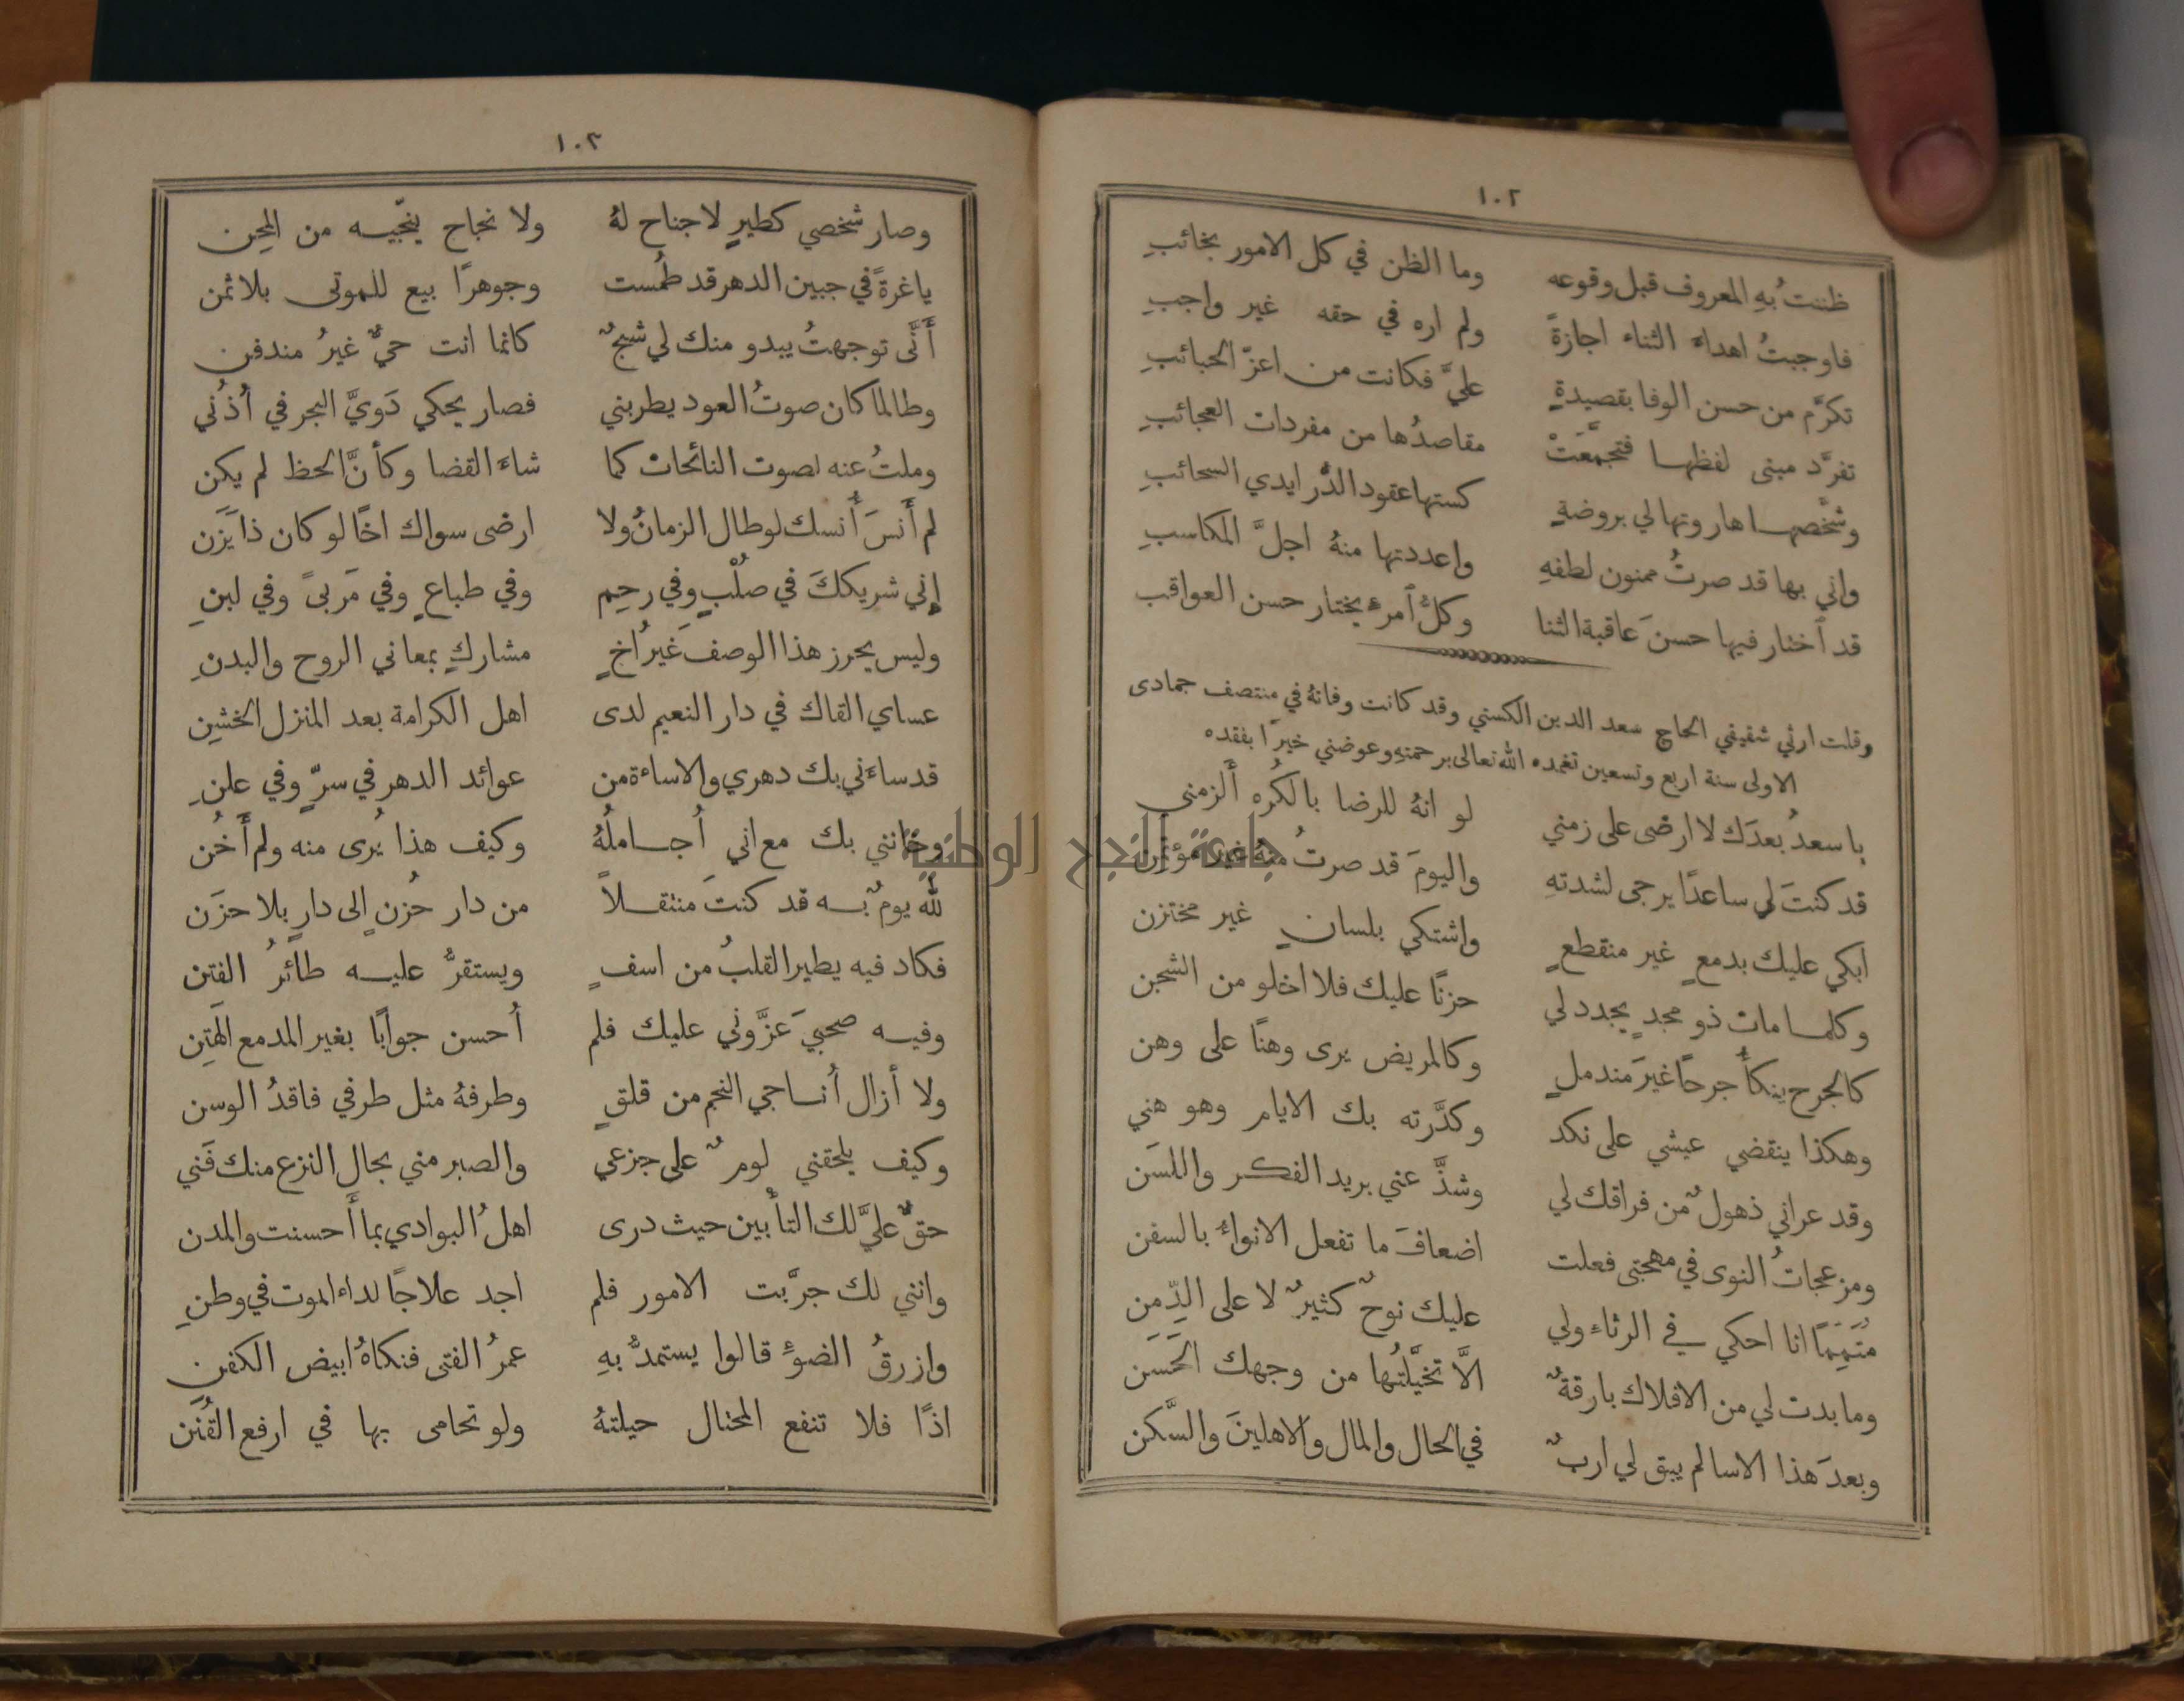 ١٠٢
ظننتُ بهِ المعروف قبل وقوعه وما الظن في كل الامور بخائبِ
فاوجبتُ اهداءَ الثناء اجازةً ولم اره في حقه غير واجبِ
تكرَّم من حسن الوفا بقصيدةٍ عليَّ فكانت من اعزّ الحبائبِ
تفرَّد مبنى لفظها فتجمَّعَتْ مقاصدُها من مفردات العجائبِ
وشخَّصها هاروتها لي بروضةٍ كستها عقود الدُّر ايدي السحائبِ
واني بها قد صرتُ ممنون لطفهِ واعددتها منهُ اجلَّ المكاسبِ
قد ٱختار فيها حسنَ عاقبة الثنا وكلُّ ٱمرءٍ يختار حسن العواقب
وقلت ارثي شقيقي الحاج سعد الدين الكستي وقد كانت وفاتهُ في منتصف جمادى
الاولى سنة اربع وتسعين تغمده الله تعالى برحمتهِ وعوضني خيرًا بفقده
يا سعدُ بعدَك لا ارضى على زمني لو انهُ للرضا بالكُره أَلزمني
قد كنتَ لي ساعدًا يرجى لشدتهِ واليومَ قد صرتُ منهُ غير مؤتمن
ابكي عليك بدمعٍ غير منقطعٍ واشتكي بلسانٍ غير مختزن
وكلما مات ذو مجدٍ يجدد لي حزنًا عليك فلا اخلو من الشجن
كالجرح ينكأُ جرحًا غيرَ مندملٍ وكالمريض يرى وهنًا على وهن
وهكذا ينقضي عيشي على نكد وكدَّرته بك الايام وهو هني
وقد عراني ذهولٌ من فراقك لي وشذَّ عني بريد الفكر واللسَن
ومزعجاتُ النوى في مهجتي فعلت اضعافَ ما تفعل الانواءُ بالسفن
متَمِّمًا انا احكي في الرثاءِ ولي عليك نوحٌ كثيرٌ لا على الدِّمَن
وما بدت لي من الافلاك بارقةٌ الاَّ تخيَّلتُها من وجهك الحَسَن
وبعدَ هذا الاسا لم يبق لي اربٌ في الحال والمال والاهلينَ والسَّكن
١٠٣
وصار شخصي كطيرٍ لا جناح لهُ ولا نجاح ينجّيه من المِحن
يا غرةً في جبين الدهر قد طُمست وجوهرًا بيع للموتى بلا ثمن
أَنَّى توجهتُ يبدو منك لي شبحٌ كانما انت حيٌّ غيرُ مندفن
وطالما كان صوتُ العود يطربني فصار يحكي دَويَّ البحر في أُذُني
وملتُ عنه لصوت النائحات كما شاءَ القضا وكأنَّ الحظ لم يكن
لم أَنسَ أُنسك لو طال الزمانُ ولا ارضى سواك اخًا لو كان ذا يَزَن
إِني شريككَ في صلْبٍ وفي رحِم وفي طباعٍ وفي مَربىً وفي لبنِ
وليس يحرز هذا الوصف غيرُ اخٍ مشاركٍ بمعاني الروح والبدنِ
عساي القاك في دار النعيم لدى اهل الكرامة بعد المنزل الخشِن
قد ساءَني بك دهري والاساءة من عوائد الدهر في سرّ وفي علنِ
وخانني بك مع اني أُجاملُهُ وكيف هذا يُرى منه ولم أَخُن
لله يومٌ به قد كنتَ منتقلاً من دار حُزنٍ الى دارٍ بلا حزَن
فكاد فيه يطير القلبُ من اسفٍ ويستقرُّ عليه طائرُ الفتن
وفيه صحبيَ عزَّوني عليك فلم أُحسن جوابًا بغير المدمع الهَتِن
ولا أزال أُناجي النجم من قلقٍ وطرفهُ مثل طرفي فاقدُ الوسن
وكيف يلحقني لومٌ على جزعي والصبر مني بحال النزع منك فَني
حقٌّ عليَّ لك التأبين حيث درى اهلُ البوادي بما أَحسنت والمدن
وانني لك جرَّبت الامور فلم اجد علاجًا لداءِ الموت في وطنِ
وازرقُ الضوءِ قالوا يستمدُّ بهِ عمرُ الفتى فنكاهُ ابيض الكفنِ
اذًا فلا تنفع المحتال حيلتهُ ولو تحامى بها في ارفع القُنَن
جامعة النجاح الوطنية